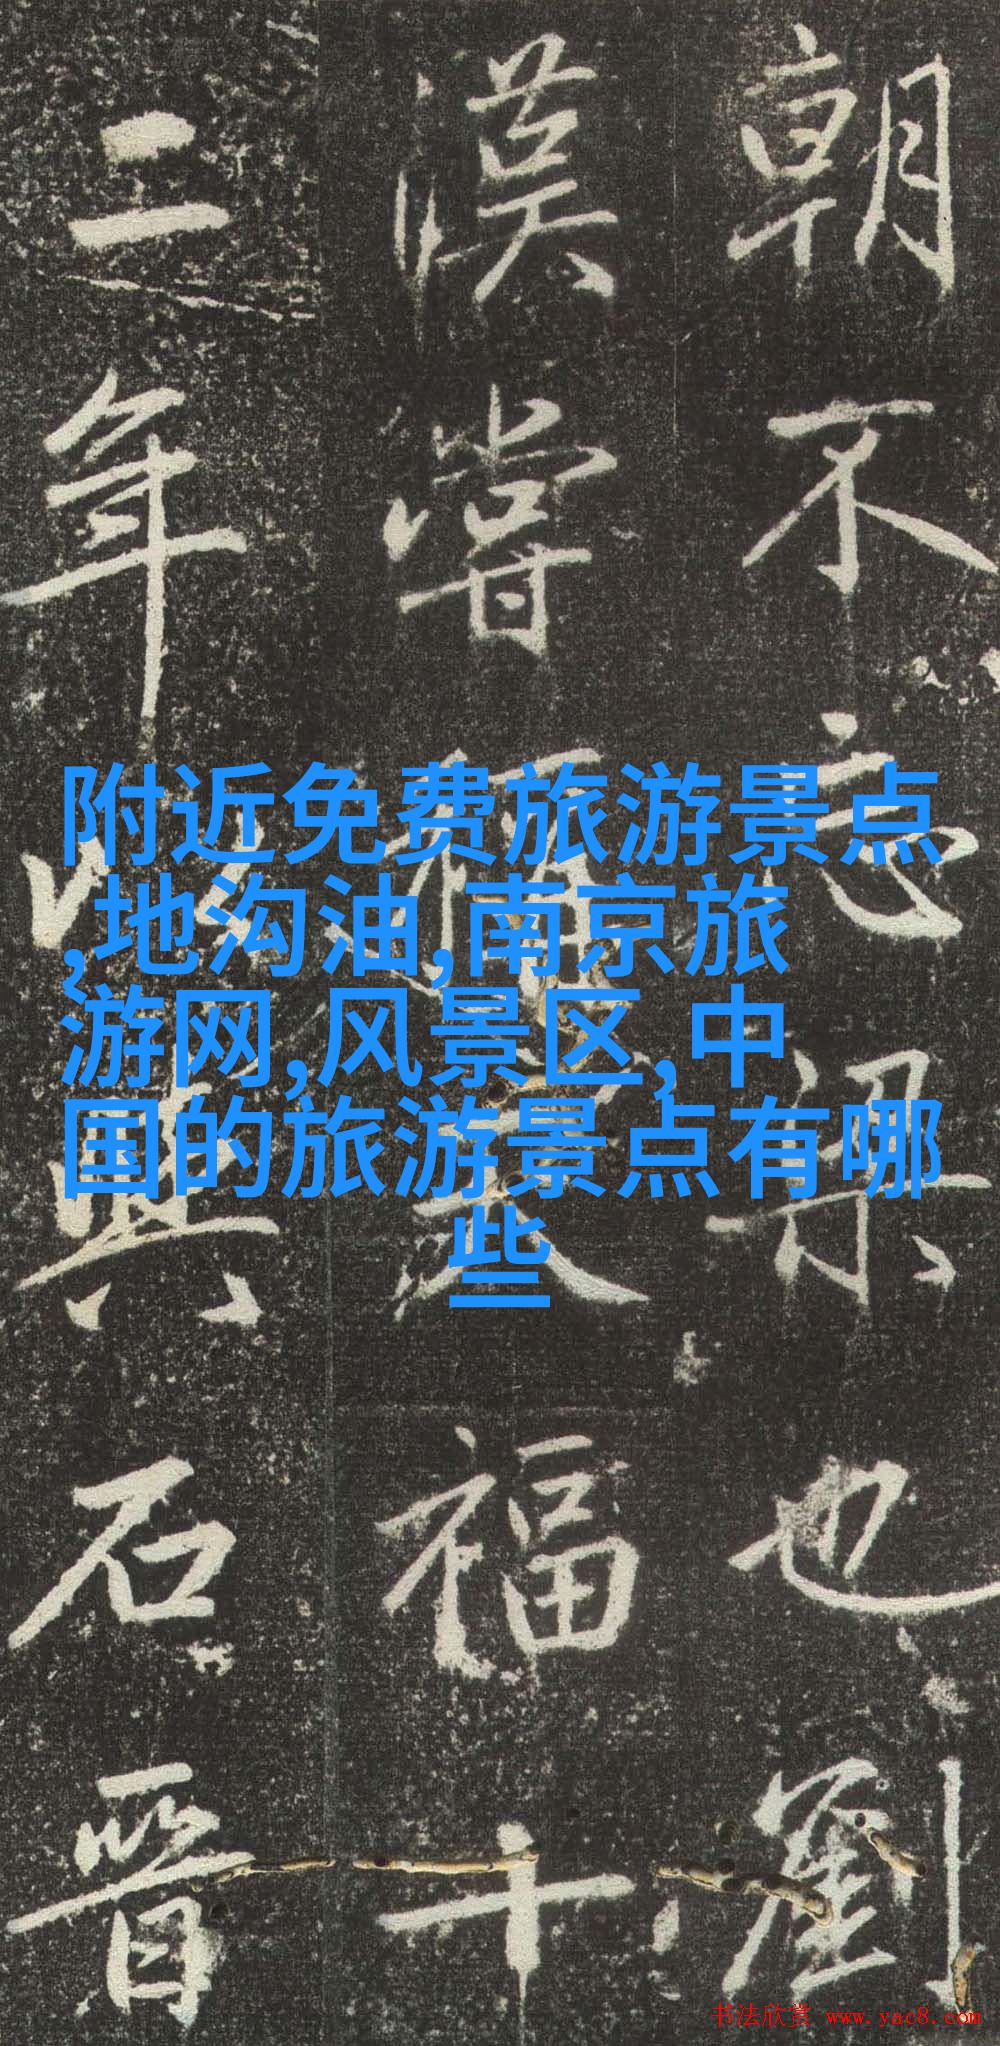 朝不忘也劉
漢嘗福十
二年以石晉
附近免费旅游景点
,地沟油,南京旅
游网,风景区,中
国的旅游景点有哪
些
书法欣赏 www.yac8.com